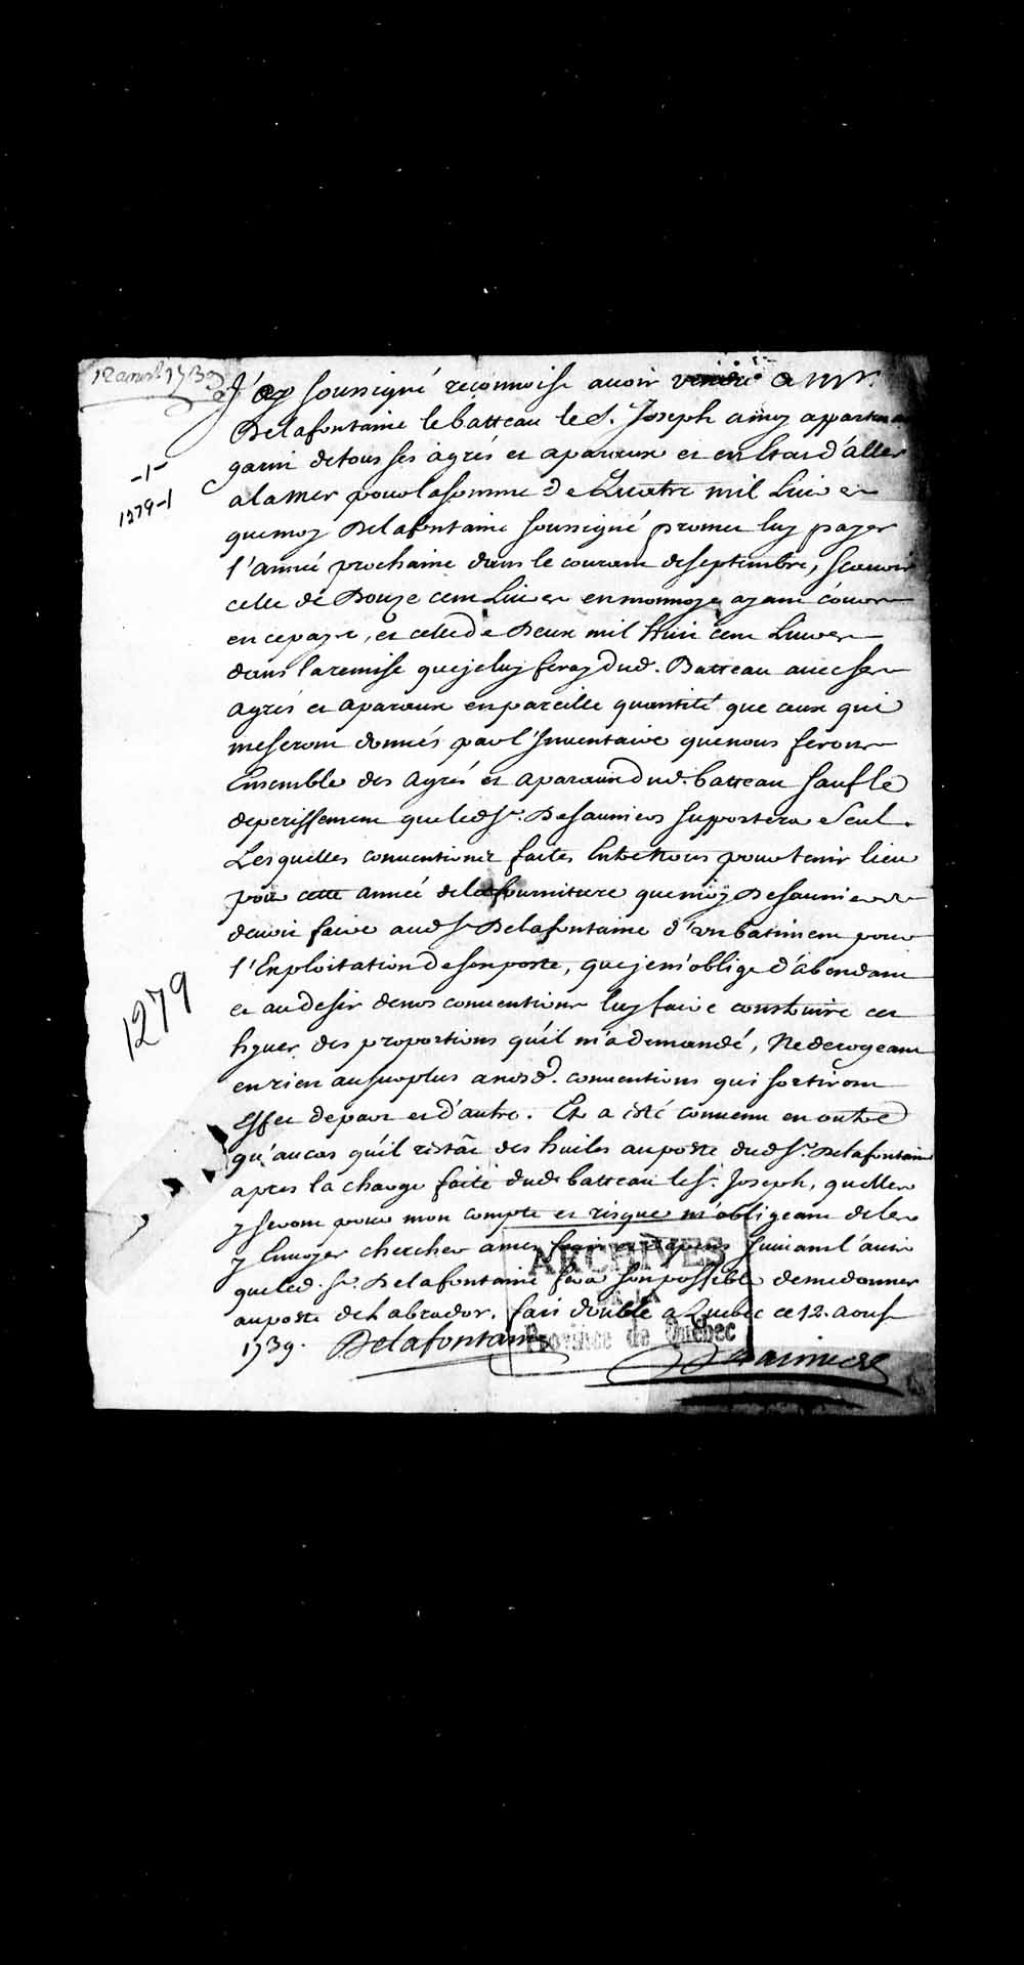 12 aoust 1739
J'ay soussigné reconnoise avoir vendu a Mr.
Delafontaine le batteau le St. Joseph a moy appartenant
garni de tous ses agrés et aparaux et en Etat d'aller
-1-
1279-1
a la mer pour la somme de Quatre mil Livres
que moy Delafontaine soussigné promet luy payer
l'année prochaine dans le courant de septembre, scavoir
celle de Douze cent Livres en monnoye ayant cours
en ce pays, et celle de Deux mil huit cent Livres
dans la remise que je luy feray dud. Batteau avec ses
agrés et aparaux en pareille quantité que ceux qui
me seront donnés par l'Inventaire que nous ferons
Ensemble des agrés et aparaux dud. batteau sauf le
deperissement que led Sr. Desauniers supportera Seul.
Lesquelles conventions faites Entre Nous pour tenir lieu
pour cette année de la fourniture que moy Desauniers
devoit faire aud Sr Delafontaine d'un batiment pour
l'Exploitation de son poste, que je m'oblige d'abondant
1279
et au desir de nos conventions luy faire construire cet
hyver des proportions qu'il m'a demandé, Ne derogeant
en rien au surplus a nosd. conventions qui sortiront
Effet de part et d'autre. Et a esté convenu en outre
qu'au cas qu'il restât des huiles au poste dud Sr. Delafontaine
apres la charge faite dud batteau le St. Joseph, quelles
y seront pour mon compte et risque m'obligeant de les
y Envoyer chercher a mes frais et depens suivant l'avis
que led. Sr. Delafontaine fera son possible de me donner
au poste de Labrador. fait double a Quebec ce 12. aoust
1739. Delafontaine
Desauniers
ARCHIVES
DE LA
Province de Québec